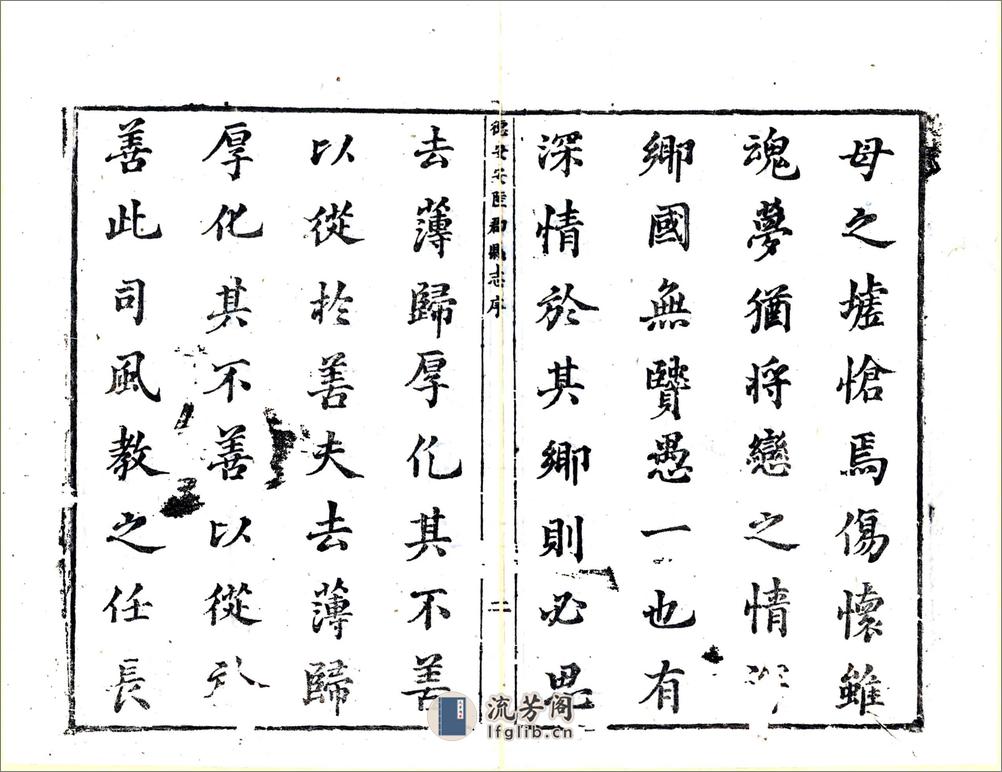 母之墟愴焉傷懷雖
魂夢猶將戀之情
鄉國無賢愚一也有
深情於其鄉則必思
德安安陸郡縣志序
二
去薄歸厚化其不善
以從於善夫去薄歸
厚化其不善以從於
善此司風教之任長
流芳阁
lfglib.cn